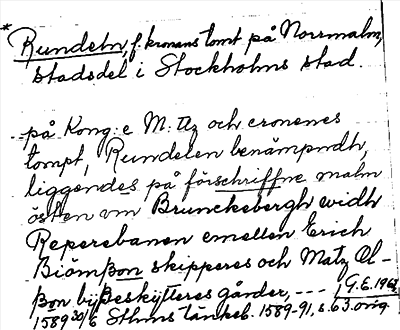 * Rundeln, f. kronans tomt på Norrmalm,
stadsdel i Stockholms stad.
på Kong: e M: tz och cronenes
tompt, Rundelen benämpndh,
liggendes på förschriffne malm
östten om Brunckebergh widh
Reperebanen emellen Erich
Biömßon skipperes och Matz Ol-
ßon byßeskytteres gånder, ---
1589 30/6 Sthms tänkeb. 1589-91, s. 63 orig
G.E. 1962